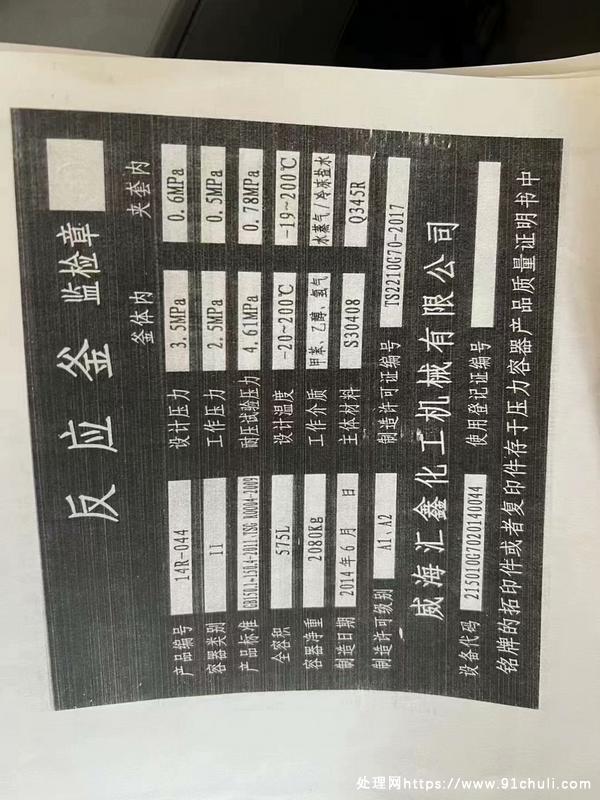 反应釜 监检章
釜体内 夹套内
产品编号 14R-044 设计压力 3.5MPa 0.6MPa
容器类别 II 工作压力 2.5MPa 0.5MPa
产品标准 GB150.1~150.4-2011、TSG R0004-2009 耐压试验压力 4.61MPa 0.78MPa
全容积 575L 设计温度 -20~200℃ -19~200℃
容器净重 2080Kg 工作介质 甲苯、乙醇、氢气 水蒸气/冷冻盐水
制造日期 2014年6月 日 主体材料 S30408 Q345R
制造许可级别 A1、A2 制造许可证编号 TS2210G70-2017
威海汇鑫化工机械有限公司
设备代码 215010G7020140044 使用登记证编号
铭牌的拓印件或者复印件存于压力容器产品质量证明书中
处理网https://www.91chuli.com